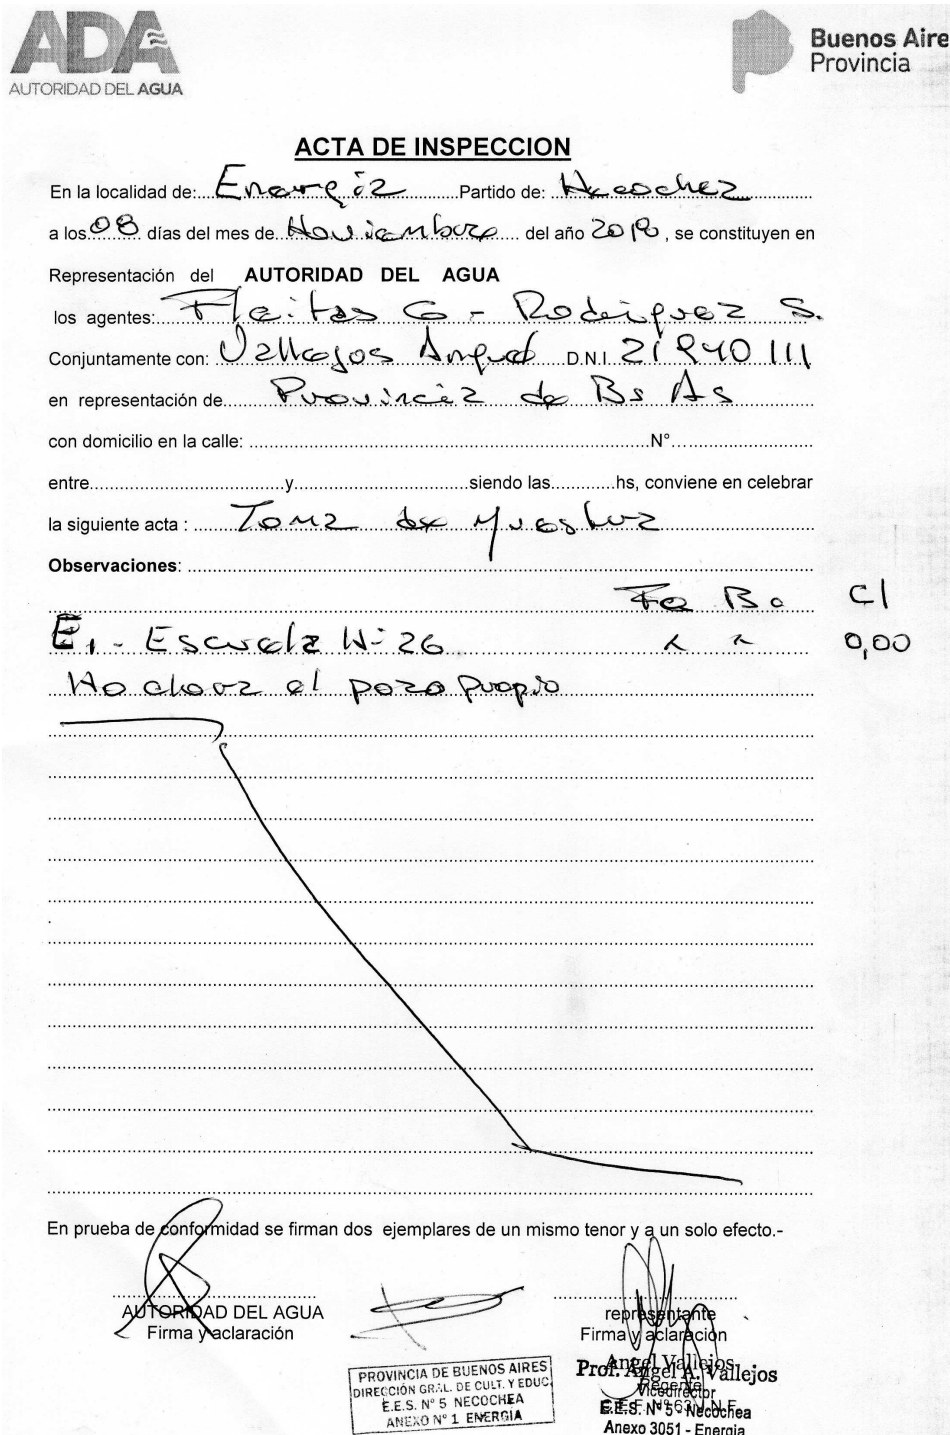 ADA
AUTORIDAD DEL AGUA
Buenos Aire
Provincia
ACTA DE INSPECCION
En la localidad de: Energia Partido de: Necochea
a los 08 días del mes de Noviembre del año 2018, se constituyen en
Representación del AUTORIDAD DEL AGUA
los agentes: Fleitas G - Rodriguez S.
Conjuntamente con: Vallejos Angel D.N.I. 21940111
en representación de Provincia de Bs As
con domicilio en la calle: N°
entre y siendo las hs, conviene en celebrar
la siguiente acta : Toma de Muestra
Observaciones:
Fq Bc Cl
E1 - Escuela N° 26 x x 0,00
No clora el pozo propio
En prueba de conformidad se firman dos ejemplares de un mismo tenor y a un solo efecto.-
AUTORIDAD DEL AGUA
Firma y aclaración
representante
Firma y aclaración
PROVINCIA DE BUENOS AIRES
DIRECCIÓN GRAL. DE CULT. Y EDUC.
E.E.S. N° 5 NECOCHEA
ANEXO N° 1 ENERGIA
Angel Vallejos
Prof. Angel A. Vallejos
Regente
Vicedirector
E.E.S. N° 5 - Necochea
Anexo 3051 - Energia